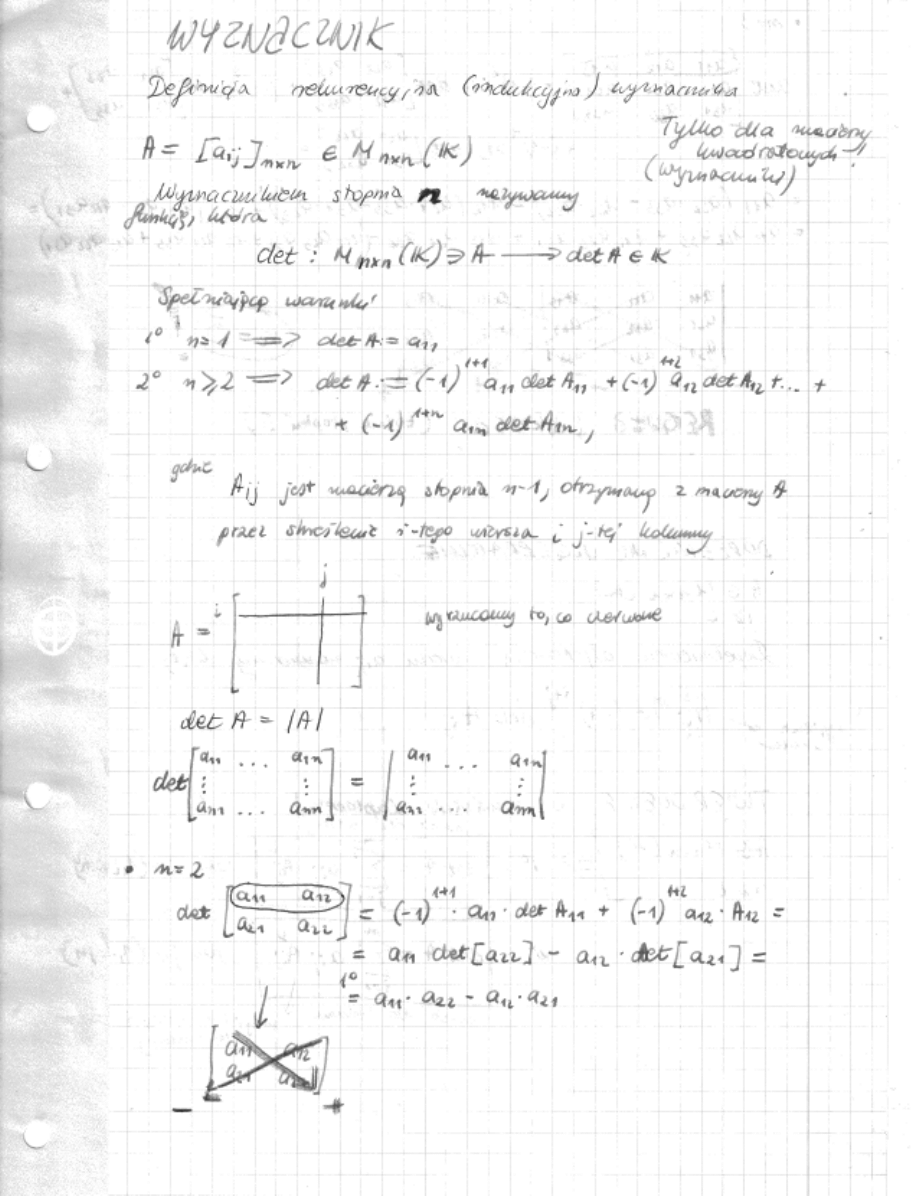 WYZNACZNIK
Definicja rekurencyjna (indukcyjna) wyznacznika
Tylko dla macierzy
kwadratowych!
(wyznaczniki)
A = [aij]nxn ∈ Mnxn(IK)
Wyznacznikiem stopnia n nazywamy
funkcję, która
det : Mnxn(IK) ∋ A ⟶ det A ∈ IK
Spełniającą warunki
1° n=1 ⟹ det A := a11
2° n⩾2 ⟹ det A := (-1)^1+1 a11 det A11 + (-1)^1+2 a12 det A12 + ... +
+ (-1)^1+n a1n det A1n,
gdzie
Aij jest macierzą stopnia n-1, otrzymaną z macierzy A
przez skreślenie i-tego wiersza i j-tej kolumny
j
A = i [ ]
wyrzucamy to, co czerwone
det A = |A|
det [a11 ... a1n] = |a11 ... a1n|
⋮ ⋮ ⋮ ⋮
an1 ... ann an1 ... ann
• n=2
det [a11 a12] = (-1)^1+1 · a11 · det A11 + (-1)^1+2 a12 · A12 =
a21 a22
= a11 det[a22] - a12 · det[a21] =
1°
= a11 · a22 - a12 · a21
a11 a12
a21 a22
- +